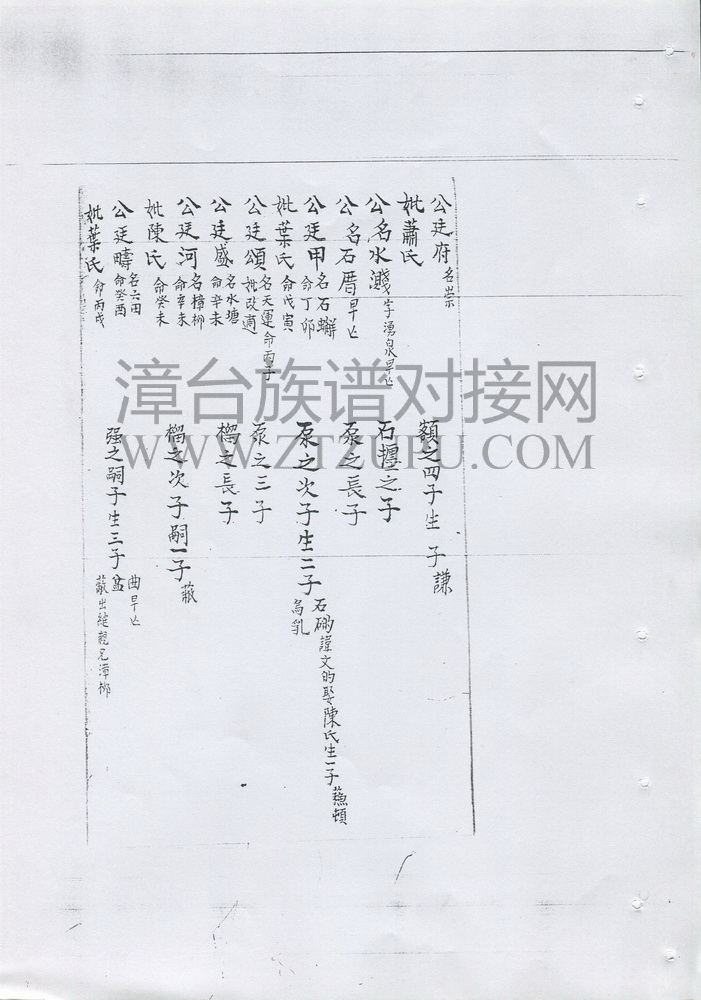 公廷府 名崇 額之四子生 子謙
妣蕭氏
公名水濺 字湧泉早亡 石擡之子
公名石厝早亡 泵之長子
公廷甲 名石蠏 命丁卯 泵之次子生二子 石磡諱文的娶陳氏生一子 烏乳
妣葉氏 命戊寅
公廷頌 名天運命丙子 妣改適 泵之三子
公廷盛 名水塘 命辛未 榴之長子
公廷河 名樟柳 命辛未 榴之次子嗣一子
妣陳氏 命癸未
公廷疇 名六田 命癸酉 强之嗣子生三子 曲早亡 出繼親兄漳柳
妣葉氏 命丙戌
漳台族谱对接网
WWW.ZTZUPU.COM